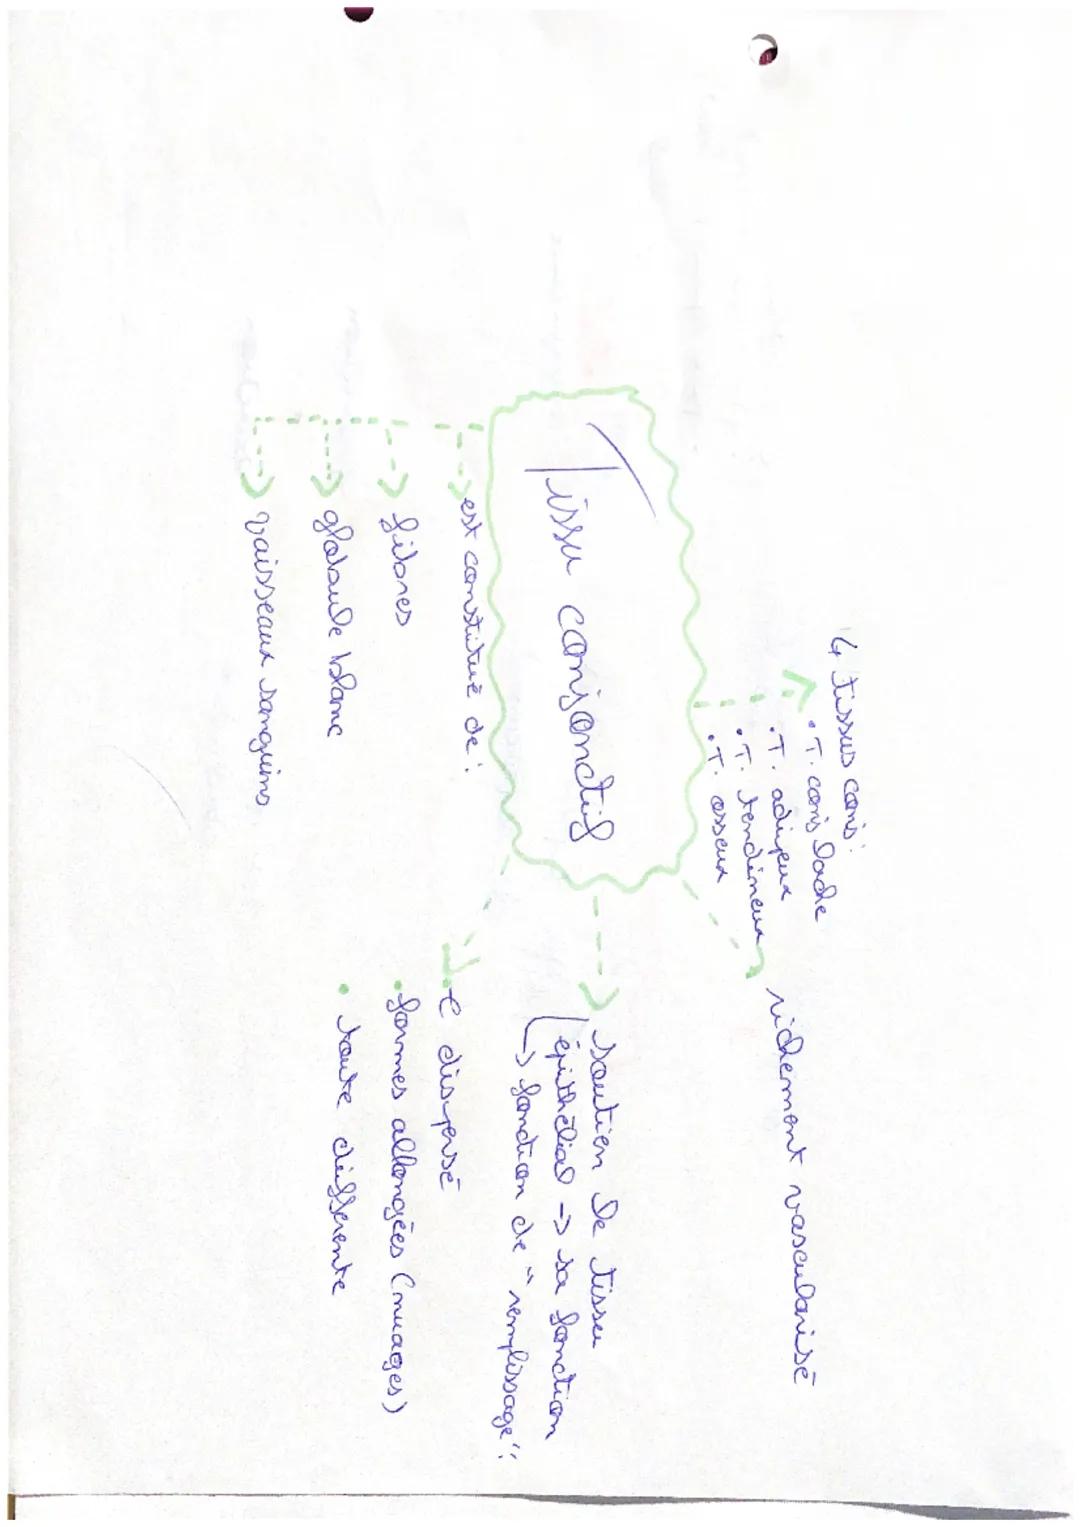 4 tissus conj:
• T. conj lache
• T. adipeux
• T. tendineux
• T. osseux
richement vascularisé
Tissu conjonctif
soutien le tissu
épithélial -> sa fonction
-> fonction de "remplissage"
est constitué de :
fibres
globule blanc
vaisseaux sanguins
• C dispersé
• formes allongées (nuages)
• toute différente